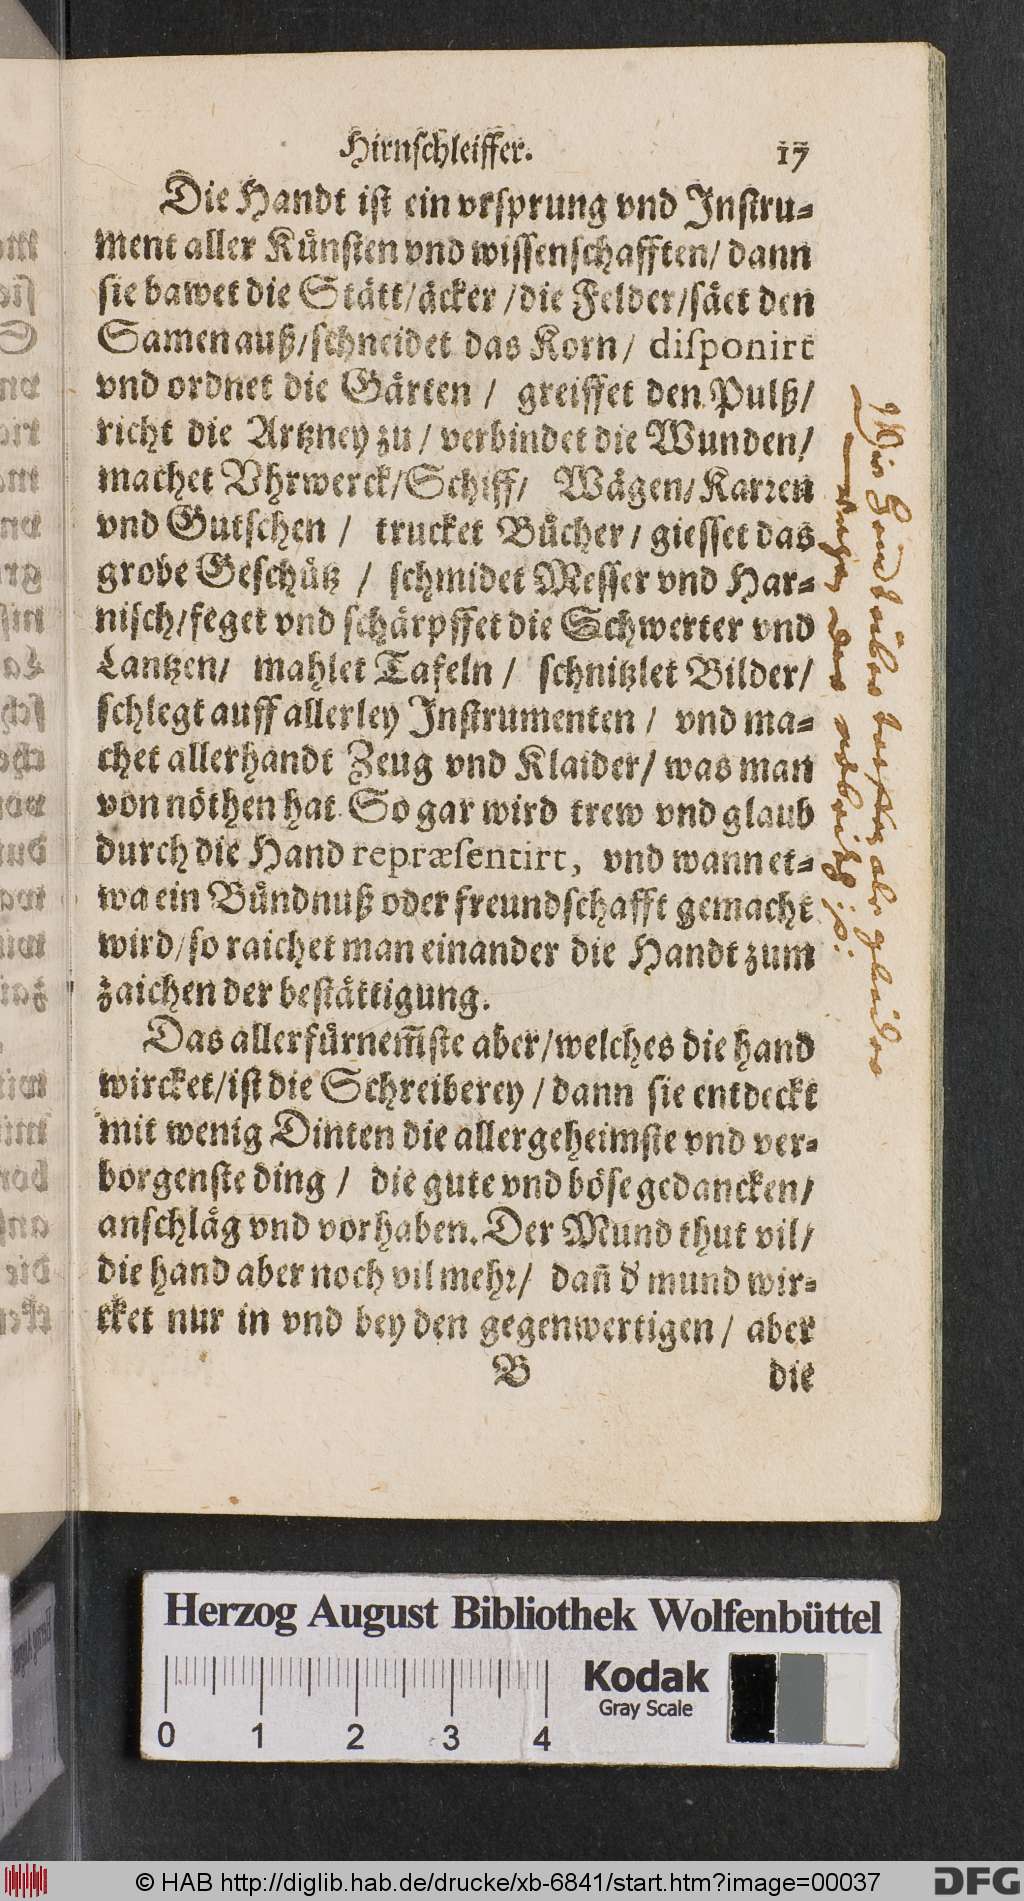 Hirnschleiffer. 17
Die Handt ist ein vrsprung vnd Instru⸗
ment aller Künsten vnd wissenschafften/ dann
sie bawet die Stätt/äcker/die Felder/säet den
Samen auß/schneidet das Korn/ disponirt
vnd ordnet die Gärten / greiffet den Pulß/
richt die Artzney zu/ verbindet die Wunden/
machet Vhrwerck/Schiff/ Wägen/Karren
vnd Gutschen / trucket Bücher/ giesset das
grobe Geschütz / schmidet Messer vnd Har⸗
nisch/feget vnd schärpffet die Schwerter vnd
Lantzen/ mahlet Tafeln/ schnitzlet Bilder/
schlegt auff allerley Instrumenten / vnd ma⸗
chet allerhandt Zeug vnd Klaider/ was man
von nöthen hat. So gar wird trew vnd glaub
durch die Hand repræsentirt, vnd wann et⸗
wa ein Bündnuß oder freundschafft gemacht
wird/so raichet man einander die Handt zum
zaichen der bestättigung.
Das allerfürnem̃ste aber/welches die hand
wircket/ist die Schreiberey/ dann sie entdeckt
mit wenig Dinten die allergeheimste vnd ver⸗
borgenste ding / die gute vnd böse gedancken/
anschläg vnd vorhaben. Der Mund thut vil/
die hand aber noch vil mehr/ dañ d' mund wir⸗
cket nur in vnd bey den gegenwertigen/ aber
B die
Herzog August Bibliothek Wolfenbüttel
Kodak
Gray Scale
0 1 2 3 4
© HAB http://diglib.hab.de/drucke/xb-6841/start.htm?image=00037
DFG